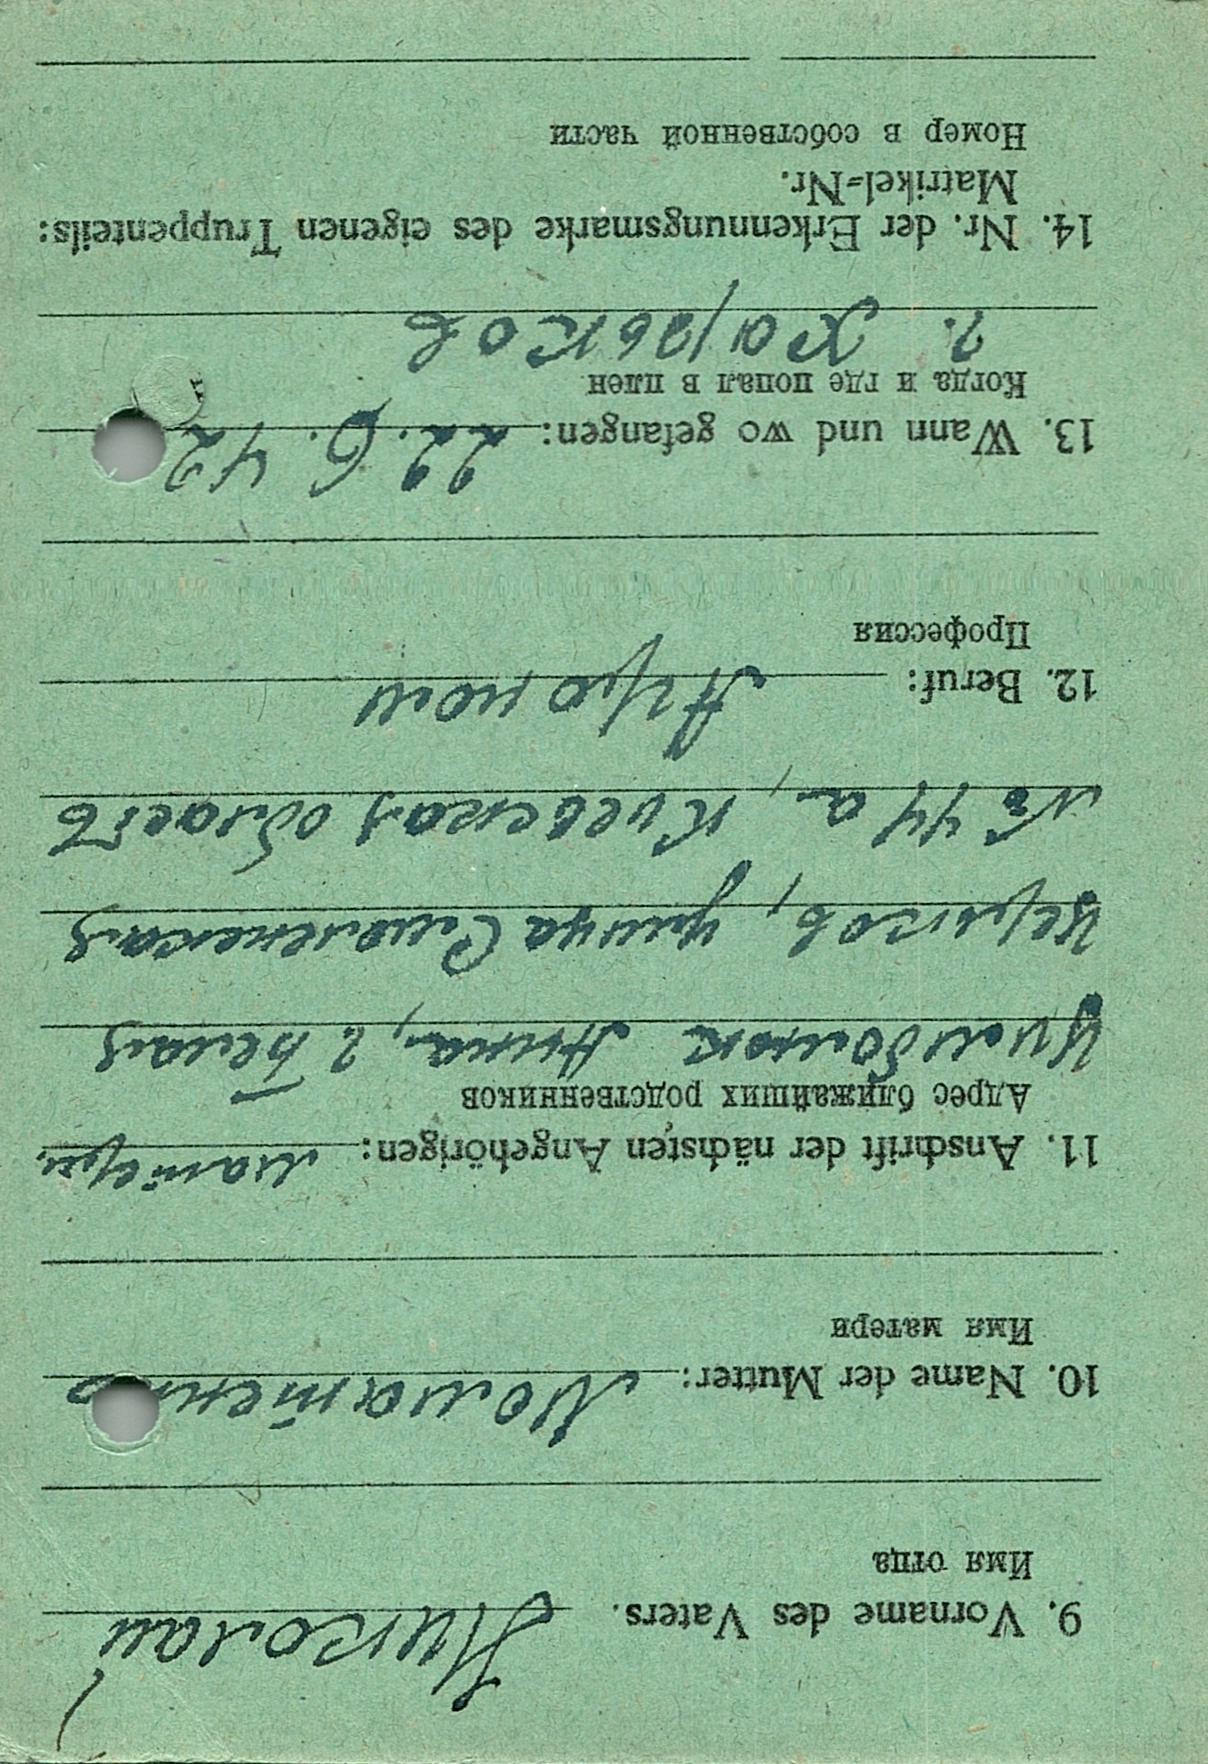 9. Vorname des Vaters. Николай
Имя отца
10. Name der Mutter:
Имя матери
11. Anschrift der nächsten Angehörigen: матери
Адрес ближайших родственников
Цимбалюк Анна, г Белая
Церьков, улица Смоленская
№ 44 а, Киевская область
12. Beruf: Агроном
Профессия
13. Wann und wo gefangen: 22. 6. 42
Когда и где попал в плен
г. Харьков
14. Nr. der Erkennungsmarke des eigenen Truppenteils:
Matrikel=Nr.
Номер в собственной части